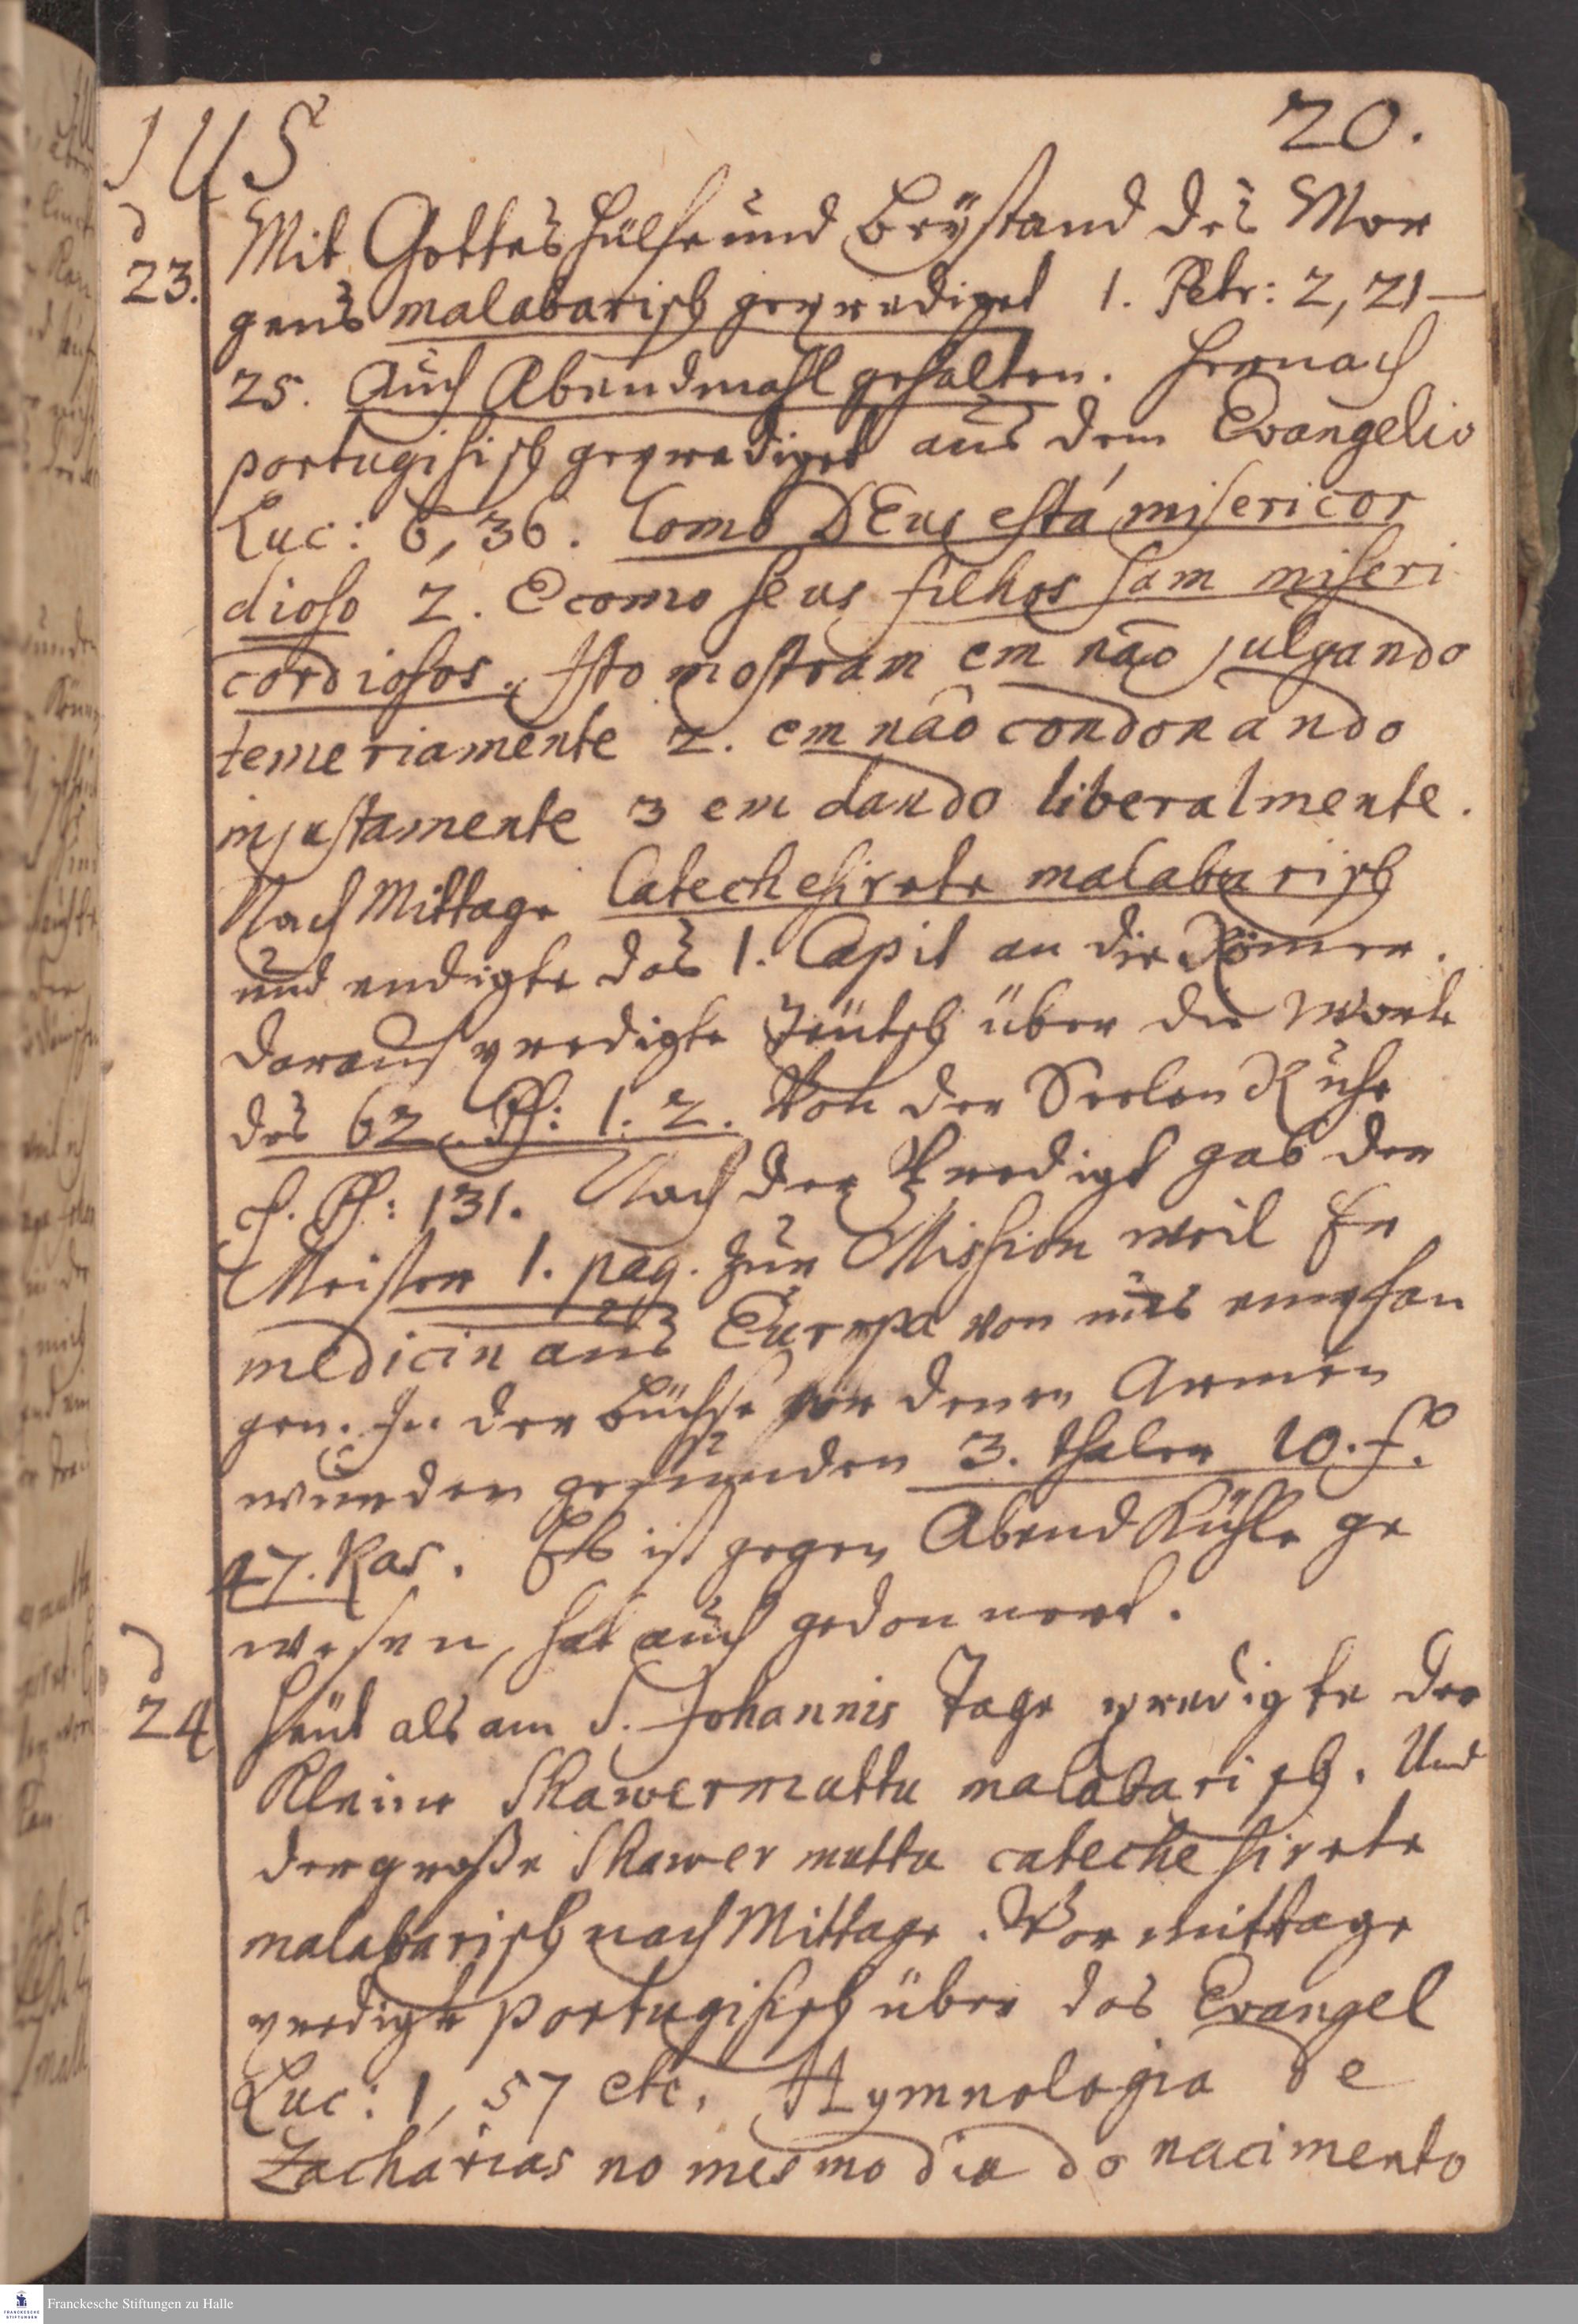 20.
d
23.
Mit Gottes Hülfe und Beystand des Mor
gens malabarisch geprediget 1. Petr: 2, 21 —
25. Auch Abendmahl gehalten. Hernach
portugisisch geprediget aus dem Evangelio
Luc: 6, 36. Como DEus está misericor
dioso 2. E como seus filhos sam miseri
cordiosos. Isto mostram em não julgando
temeriamente 2. em não condonando
injustamente 3 em dando liberalmente.
Nach Mittage Catechesirete malabarisch
und endigte das 1. Capit an die Römer.
darauf predigte Teütsch über die Worte
des 62. Ps: 1. 2. Von der Seelen Ruhe
cf. Ps: 131. Nach der Predigt gab der
Meister 1. pag. zur Mission weil Er
medicin aus Europa von uns empfan
gen. In der Büchse vor denen Armen
wurden gefunden 3. thaler 10. f.
47. Kas. Es ist gegen Abend Kühle ge
wesen, hat auch gedonnert.
24
Heüt als am S. Johannis Tage predigte der
Kleine Skawermuttu malabarisch. Und
der große Skawer muttu catechesirete
malabarisch nach Mittage. Vor mittage
predigte portugisisch über das Evangel
Luc: 1, 57 etc. Hymnologia de
Zacharias no mesmo dia do nacimento
Franckesche Stiftungen zu Halle
FRANCKESCHE
STIFTUNGEN